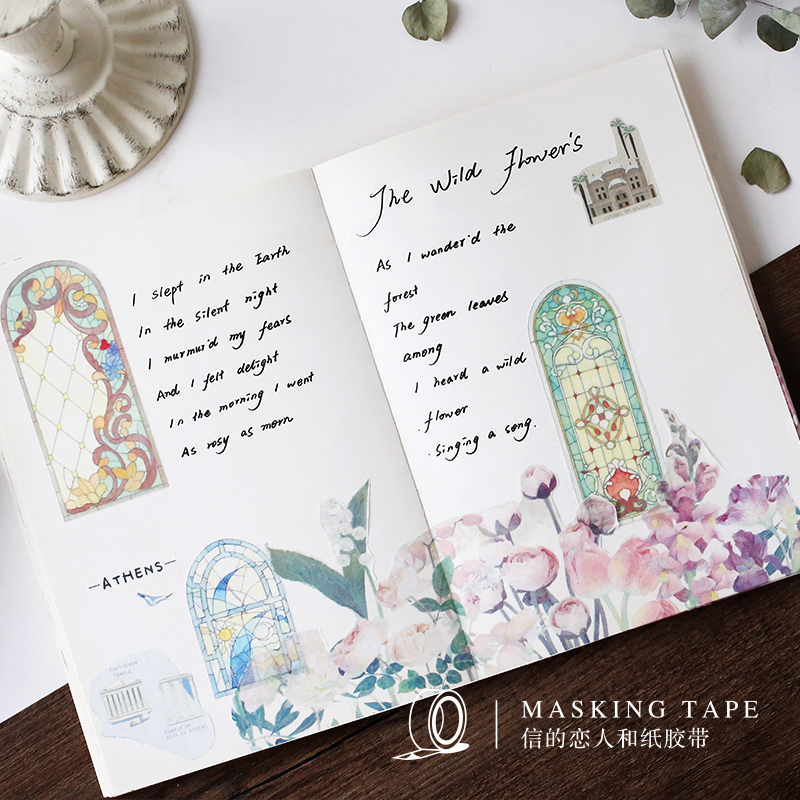 I slept in the Earth
In the silent night
I murmur'd my fears
And I felt delight
In the morning I went
As rosy as morn
—ATHENS—
PARTHENON
TEMPLE
The Wild Flower's
As I wander'd the
forest
The green leaves
among
I heard a wild
flower
Singing a song.
MASKING TAPE
信的恋人和纸胶带